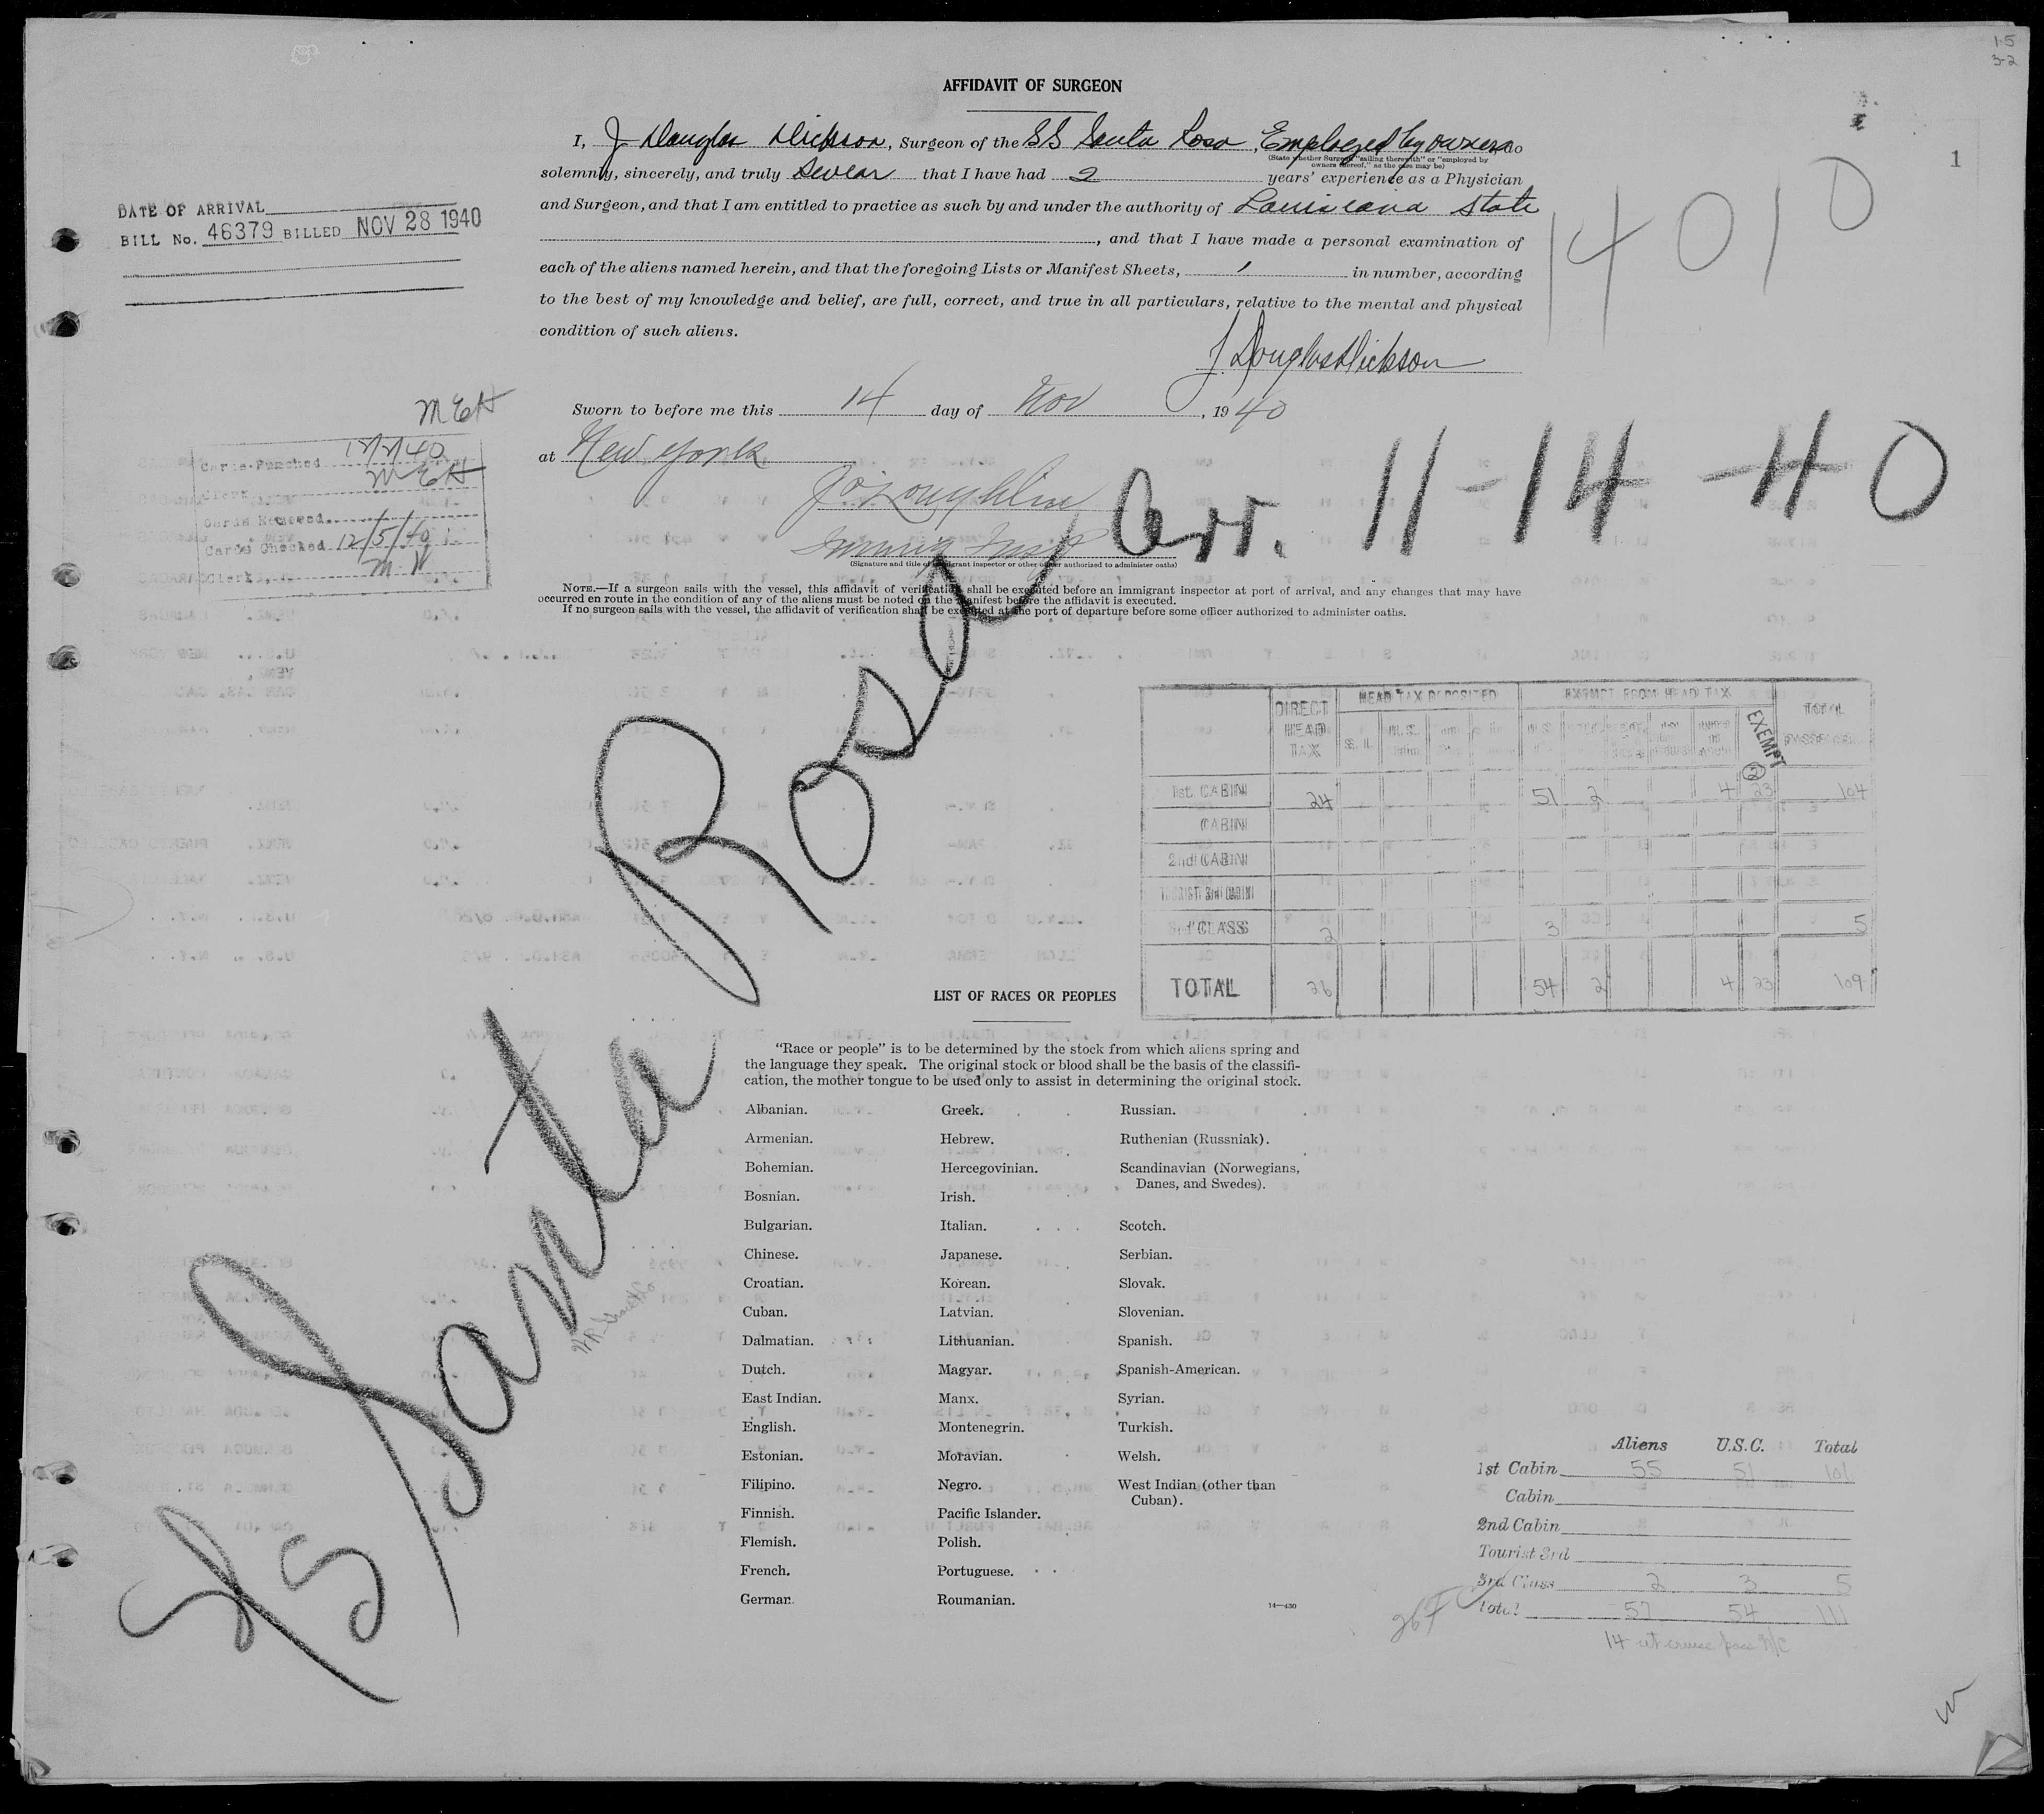 15
32
1
AFFIDAVIT OF SURGEON
I, J Douglas Dickson, Surgeon of the SS Santa Rosa, Employed by owners do
(State whether Surgeon "sailing therewith" or "employed by
owners thereof," as the case may be)
solemnly, sincerely, and truly swear that I have had 2 years' experience as a Physician
and Surgeon, and that I am entitled to practice as such by and under the authority of Louisiana State
, and that I have made a personal examination of
each of the aliens named herein, and that the foregoing Lists or Manifest Sheets, 1 in number, according
to the best of my knowledge and belief, are full, correct, and true in all particulars, relative to the mental and physical
condition of such aliens.
J. Douglas Dickson
Sworn to before me this 14 day of Nov, 1940
at New York
(Signature and title of immigrant inspector or other officer authorized to administer oaths)
NOTE.—If a surgeon sails with the vessel, this affidavit of verification shall be executed before an immigrant inspector at port of arrival, and any changes that may have
occurred en route in the condition of any of the aliens must be noted on the manifest before the affidavit is executed.
If no surgeon sails with the vessel, the affidavit of verification shall be executed at the port of departure before some officer authorized to administer oaths.
DATE OF ARRIVAL
BILL No. 46379 BILLED NOV 28 1940
14010
MEH
Cards Punched
MEH
Clerk
Cards Removed
Cards Checked 12/5/40
Clerk M W
Arr. 11-14-40
SS Santa Rosa
DIRECT HEAD TAX
HEAD TAX DEPOSITED
EXEMPT FROM HEAD TAX
EXEMPT
TOTAL
1st. CABIN 24 51 2 4 23 104
CABIN
2nd CABIN
TOURIST 3rd CABIN
3rd CLASS 2 3 5
TOTAL 26 54 2 4 23 109
LIST OF RACES OR PEOPLES
"Race or people" is to be determined by the stock from which aliens spring and
the language they speak. The original stock or blood shall be the basis of the classifi-
cation, the mother tongue to be used only to assist in determining the original stock.
Albanian.
Armenian.
Bohemian.
Bosnian.
Bulgarian.
Chinese.
Croatian.
Cuban.
Dalmatian.
Dutch.
East Indian.
English.
Estonian.
Filipino.
Finnish.
Flemish.
French.
German.
Greek.
Hebrew.
Hercegovinian.
Irish.
Italian.
Japanese.
Korean.
Latvian.
Lithuanian.
Magyar.
Manx.
Montenegrin.
Moravian.
Negro.
Pacific Islander.
Polish.
Portuguese.
Roumanian.
Russian.
Ruthenian (Russniak).
Scandinavian (Norwegians,
Danes, and Swedes).
Scotch.
Serbian.
Slovak.
Slovenian.
Spanish.
Spanish-American.
Syrian.
Turkish.
Welsh.
West Indian (other than
Cuban).
14—430
Aliens U.S.C. Total
1st Cabin 55 51 106
Cabin
2nd Cabin
Tourist 3rd
3rd Class 2 3 5
Total 57 54 111